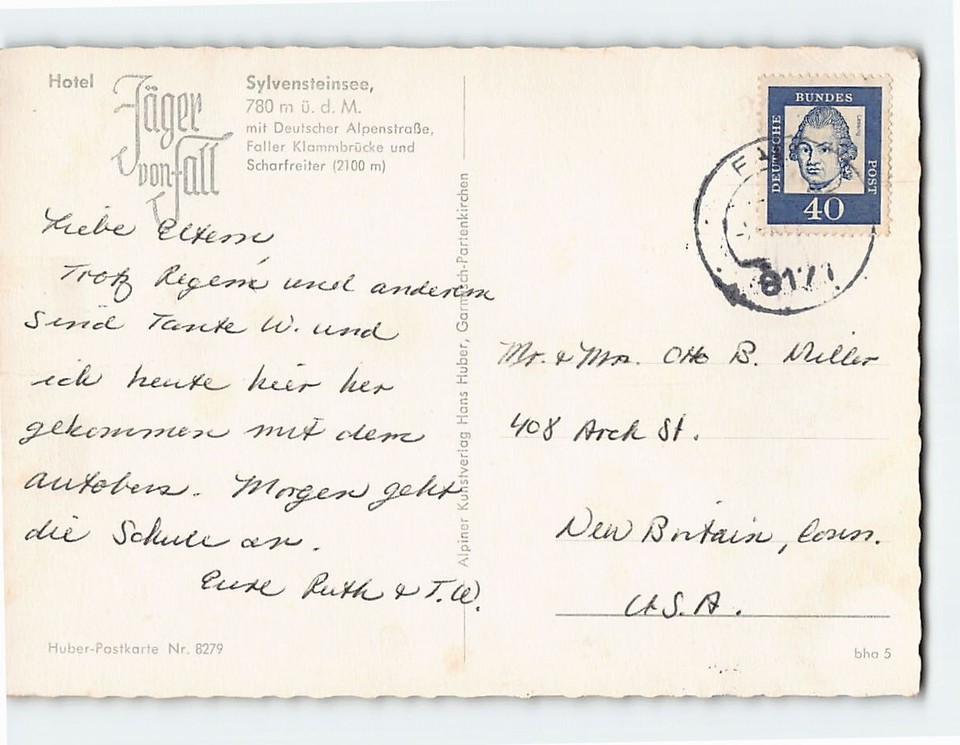 Hotel
Jäger
von Fall
Sylvensteinsee,
780 m ü. d. M.
mit Deutscher Alpenstraße,
Faller Klammbrücke und
Scharfreiter (2100 m)
Liebe Eltern
Trotz Regen und anderem
sind Tante W. und
ich heute hier her
gekommen mit dem
autobus. Morgen geht
die Schule an.
Eure Ruth & T.W.
Huber-Postkarte Nr. 8279
Alpiner Kunstverlag Hans Huber, Garmisch-Partenkirchen
DEUTSCHE
BUNDES
POST
Lessing
40
8171
Mr. & Mrs. Otto B. Miller
408 Arch St.
New Britain, Conn.
U.S.A.
bha 5